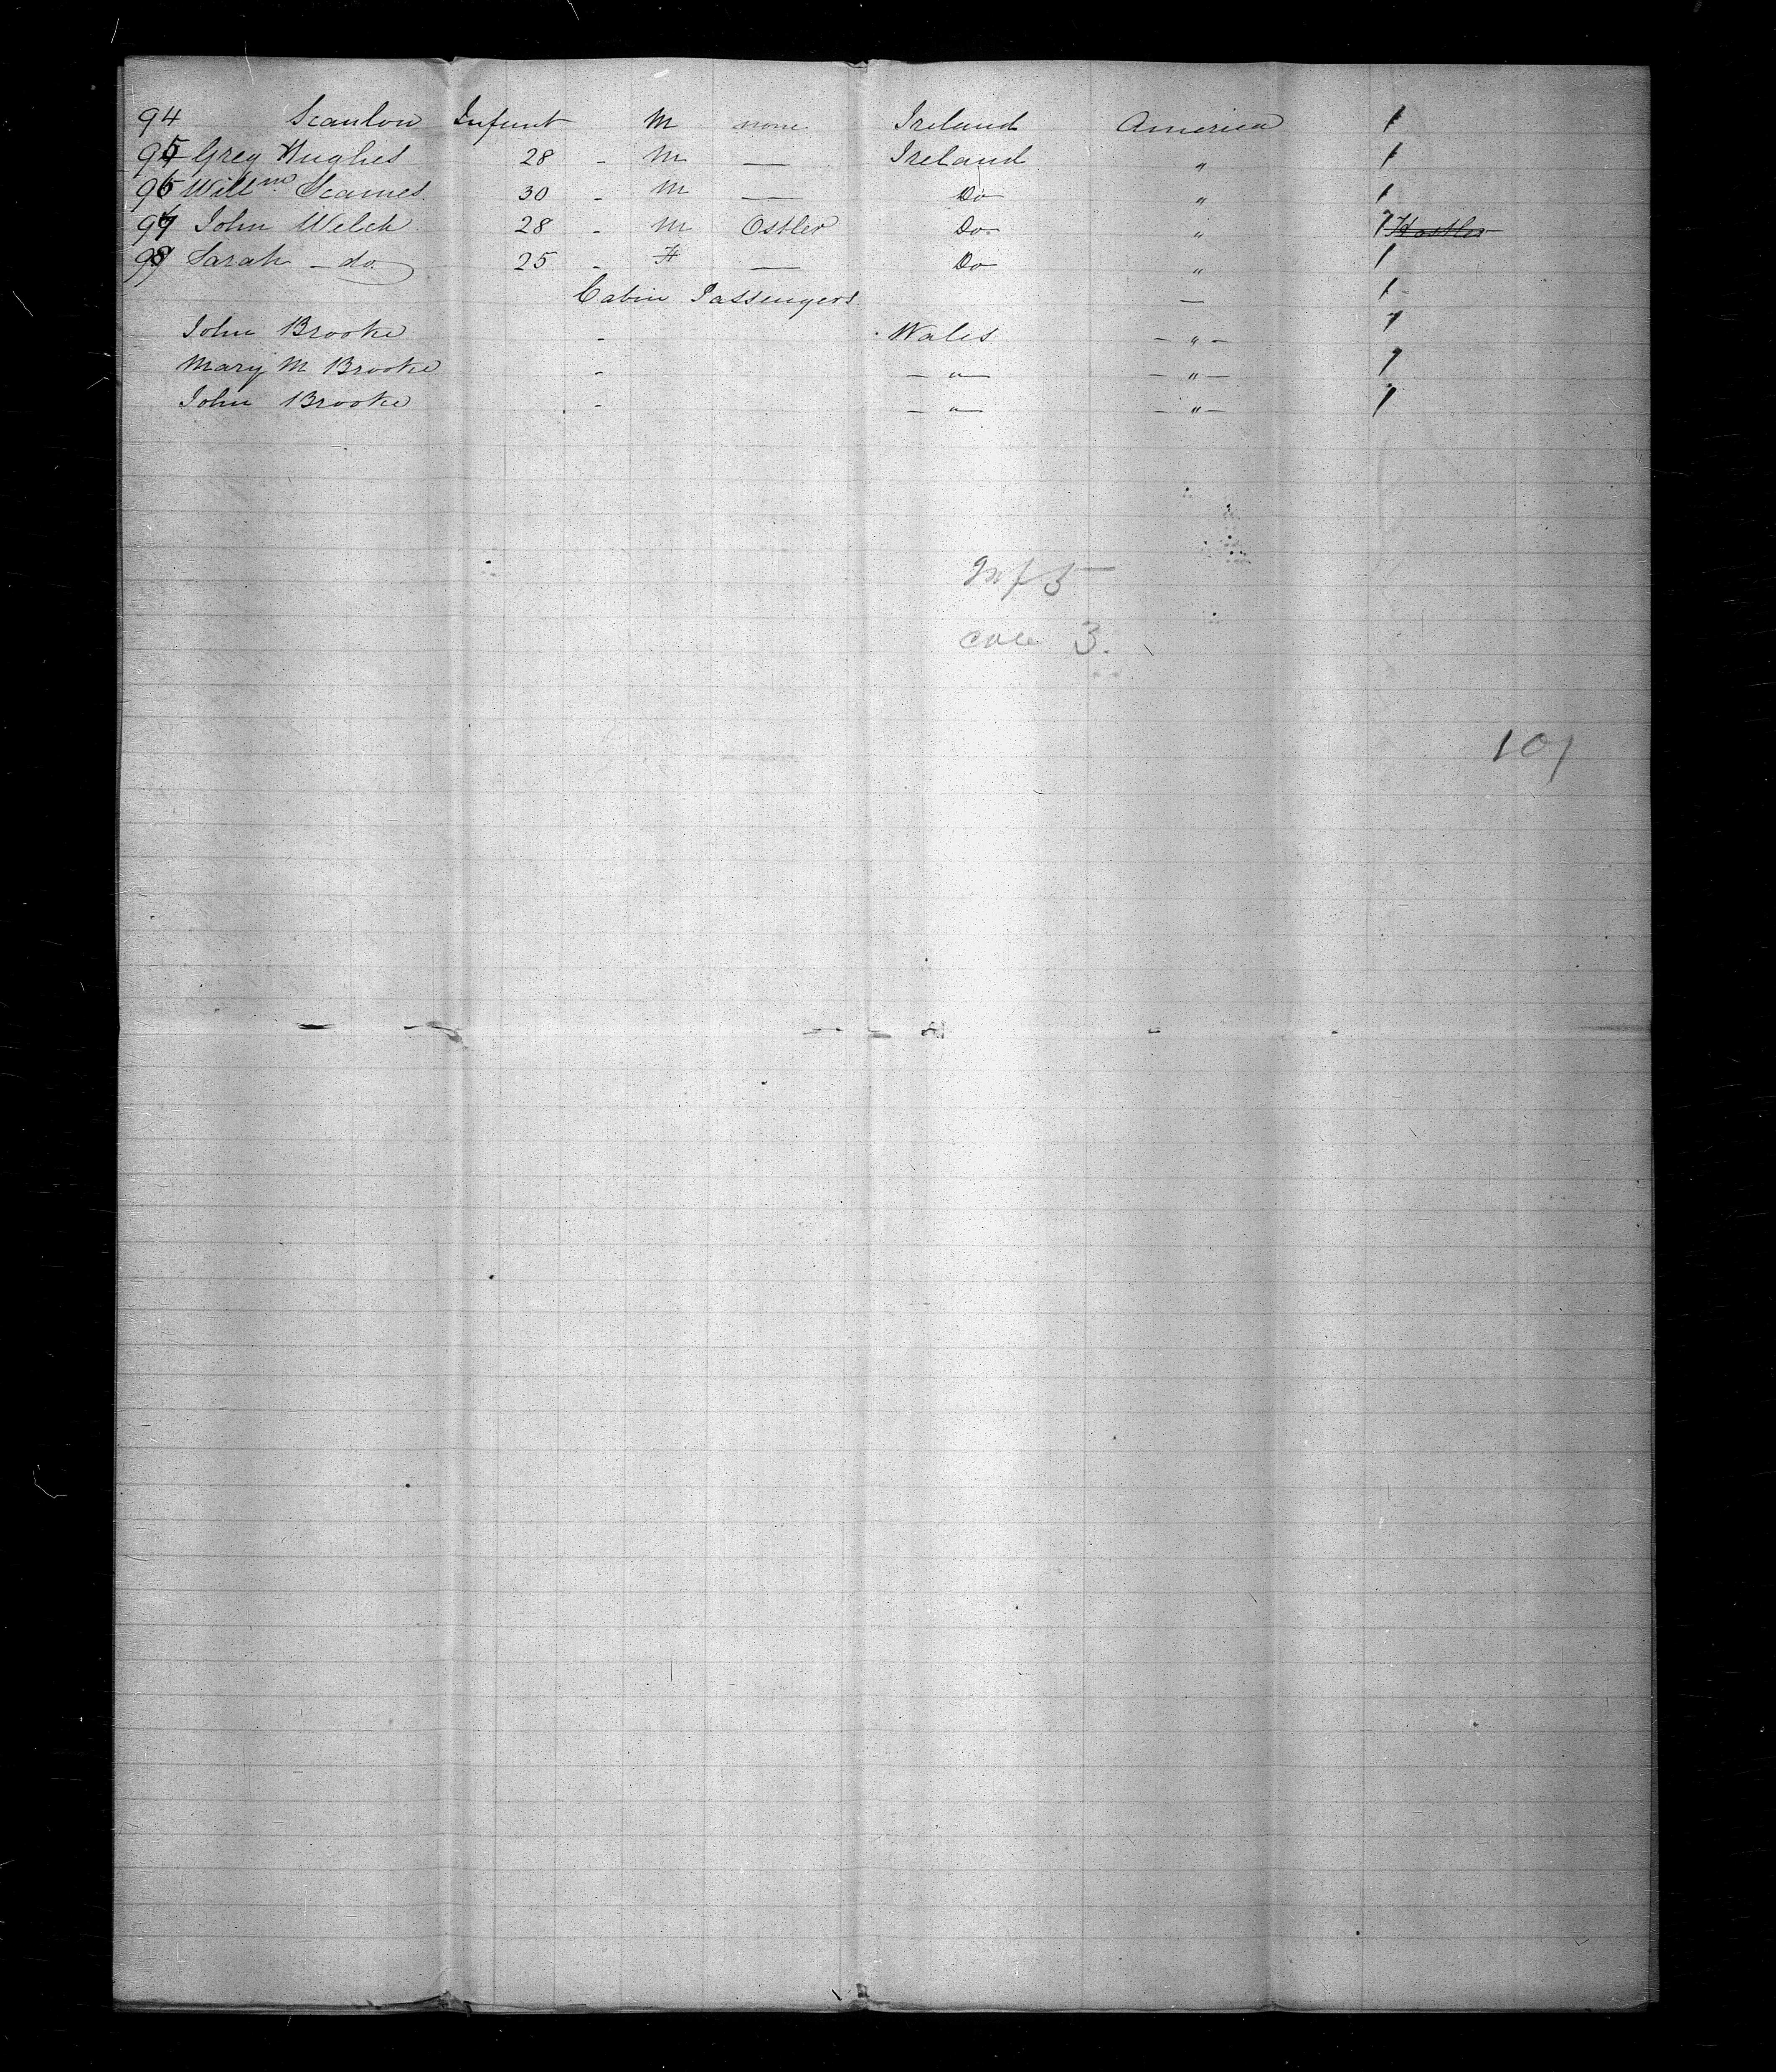 94 Scanlon Infant M none Ireland America 1
95 Greg Hughes 28 - M — Ireland " 1
96 Willm Seames 30 - M — Do " 1
97 John Welch 28 - M Ostler Do " 1 Hostler
98 Sarah - do 25 - F — Do " 1
Cabin Passengers — 1
John Brooke - Wales - " - 1
Mary M Brooke - - " - - " - 1
John Brooke - - " - - " - 1
Inf 5
3.
101